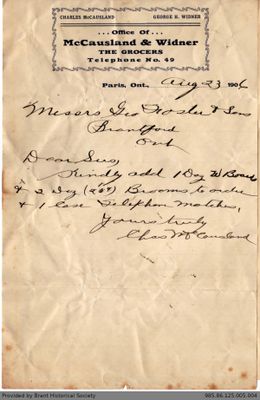 CHARLES McCAUSLAND GEORGE H. WIDNER
... Office Of ...
McCausland & Widner
THE GROCERS
Telephone No. 49
Paris, Ont., Aug 23 1906
Messrs Geo Foster & Sons
Brantford
Ont
Dear Sirs,
Kindly add 1 Doz W Boards
& 2 Doz Brooms to order
& 1 Case Telephon Matches,
Yours truly
Chas McCausland
Provided by Brant Historical Society 985.86.125.005.004